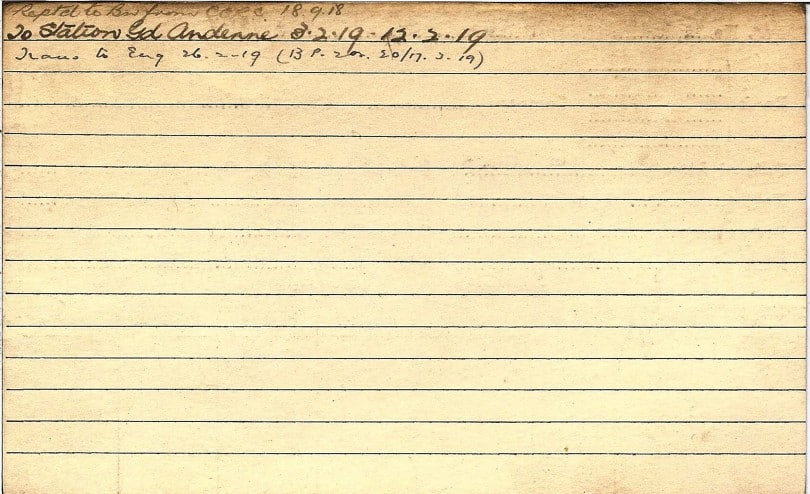 Reptd to Bn from CCRC 18.9.18
To Station Gd Andenne 3.2.19 - 12.2.19
Trans to Eng 26.2.19 (B P. 20/17.3.19)